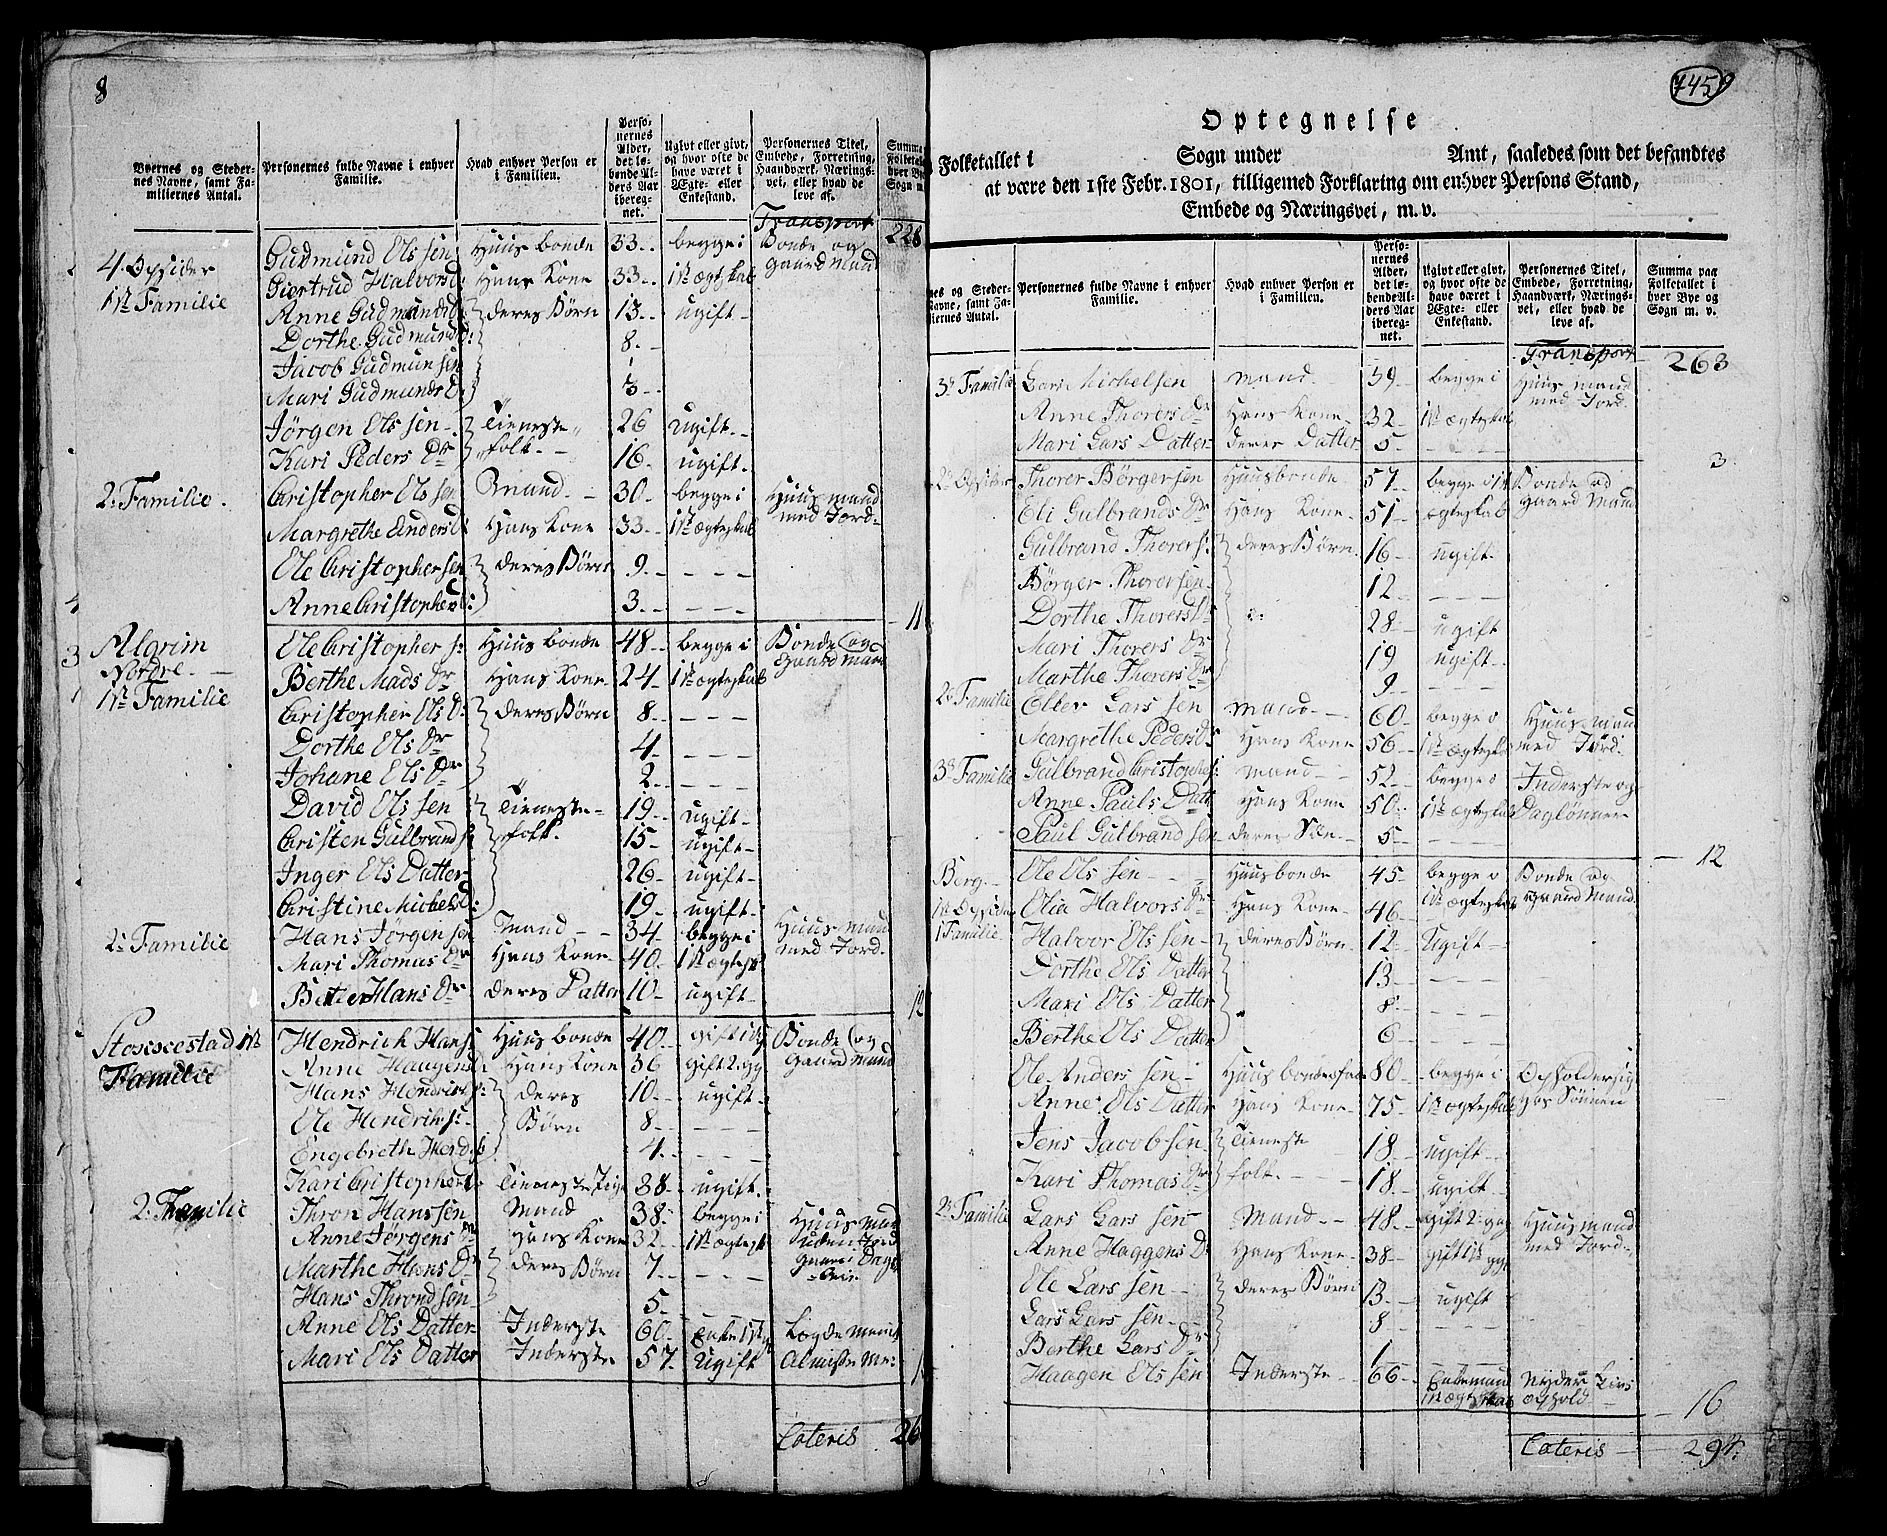 8
Byernes og Stedernes Navne, samt Familliernes Antal.
Personernes fulde Navne i enhver Familie.
Hvad enhver Person er i Familien.
Personernes Alder, det løbende Alders Aar iberegnet.
Ugivt eller givt, og hvor ofte de have været i Ægte- eller Enkestand.
Personernes Titel, Embede, Forretning, Haandværk, Næringsvei, eller hvad de leve af.
Transport 228
4. Opsider Gudmund Ols sen Huusbonde 33. begge i Bonde og
1ste Familie Giertrud Halvorsd: Hans Kone 33. 1ste ægteskab Gaard Mand
Anne Gudmundsd: deres Børn 13. ugift
Dorthe Gudmundsd: 8.
Jacob Gudmunsen 1
Mari Gudmundsd. 3
Jørgen Ols sen Tieneste 26 Ugift
Kari Peders Dr folk. 16. ugift.
2. Familie. Christopher Ols sen Mand 30. begge i Huusmand
Margrethe Endersd: Hans Kone 33. 1ste ægteskab med Jord.
Ole Christophersen deres Børn 9. - - -
Anne Christophersd: 3. - - -
Algrim Ole Christophers: Huusbonde 48. begge i Bonde og
Nordre Berthe Mads Dr Hans Kone 24. 1ste ægteskab Gaard Mand
1ste Familie Christopher Ols D: deres Børn 8. - - -
Dorthe Ols Dr 4. - - -
Johane Ols Dr 2. - - -
David Ols sen Tieneste 19. ugift
Christen Gulbrands: folk. 15. ugift
Inger Ols Datter 26. ugift
Christine Michelsd: 19. ugift
2. Familie Hans Jørgensen Mand 34. begge i Huusmand
Mari Thomas Dr Hans Kone 40. 1ste ægtesk med Jord.
Hans Dr deres Datter 10. ugift
1ste Hendrich Hans: Huusbonde 40. gift Bonde og
Familie Anne Haagensd. Hans Kone 36 gift 2. Gaard Mand
Hans Hendrichs: deres 10. ugift
Ole Hendrichs: Børn 8. - - -
Engebreth Hend: 4. - - -
Kari Christophersd: Tieneste Pige 38. ugift.
2. Familie Thron Hanssen Mand 38. begge i Huusmand
Anne Jørgens Dr Hans Kone 32. 1ste ægtesk uden Jord
Marthe Hans Dr deres Børn 7. - - -
Hans Throndsen 5.
Anne Ols Datter Inderste 60. Enke
Mari Ols Datter Inderste 57. Ugift
Lateris 26
745
Optegnelse
Folketallet i Sogn under Amt, saaledes som det befandtes
at være den 1ste Febr. 1801, tilligemed Forklaring om enhver Persons Stand,
Embede og Næringsvei, m. v.
nes og Steder- Navne, samt Familiernes Antal.
Personernes fulde Navne i enhver Familie.
Hvad enhver Person er i Familien.
Personernes Alder, det løbende Alders Aar iberegnet.
Ugivt eller givt, og hvor ofte de have været i Ægte- eller Enkestand.
Personernes Titel, Embede, Forretning, Haandværk, Næringsvei, eller hvad de leve af.
Summa paa Folketallet i hver Bye og Sogn m. v.
Transport 263
3. Familie Lars Michelsen Mand. 39. begge i Huusmand
Anne Thorers Dr Hans Kone 32. 1ste ægteskab med Jord.
Mari Lars Datter deres Datter 5. - - - 3
2. Opsider Thorer Børgersen Huusbonde 57. begge i 1ste Bonde og
Eli Gulbrands Dr Hans Kone 51. ægteskab Gaard Mand
Gulbrand Thorers: deres Børn 16 ugift.
Børger Thorersen 12 - - -
Dorthe Thorersd: 28. ugift
Mari Thorers Dr 19 ugift.
Marthe Thorers Dr 9. - - -
2. Familie Elber Lars sen Mand 60. begge Huusmand
Margrethe Pedersd: Hans Kone 56. 1ste ægteskab med Jord.
3. Familie Gulbrand Christophers: Mand 52. begge Inderste og
Anne Pauls Datt Hans Kone 50. 1ste ægteskab Daglønner
Paul Gulbrandsen deres Søn 5. - - - 12
Berg. Ole Ols sen Huusbonde 45. begge Bonde og
1ste Opsider Olia Halvors Dr Hans Kone 46. 1ste ægteskab Gaard Mand.
1 Familie Halvor Ols sen deres Børn 12. Ugift
Dorthe Ols Datter 13. - - -
Mari Ols Datter 8. - - -
Berthe Ols Datter 6 - - -
Ole Anders sen Huusbondesfad 80. begge i Opholder sig
Anne Ols Datter Hans Kone 75. 1ste ægteskab hos Sønnen
Jens Jacobsen Tieneste 18. ugift.
Kari Thomas Dr folk. 18. ugift.
2. Familie Lars Lars sen Mand 48. gift 2. gang Huusmand
Anne Haagens D: Hans Kone 38. gift 1ste med Jord
Ole Lars sen deres Børn 13. ugift
Lars Lars sen 8. - - -
Berthe Lars Dr 1
Haagen Ols sen Inderste 66. Enkemand Nyder
1ste ægteskab ophold 16
Lateris 294.